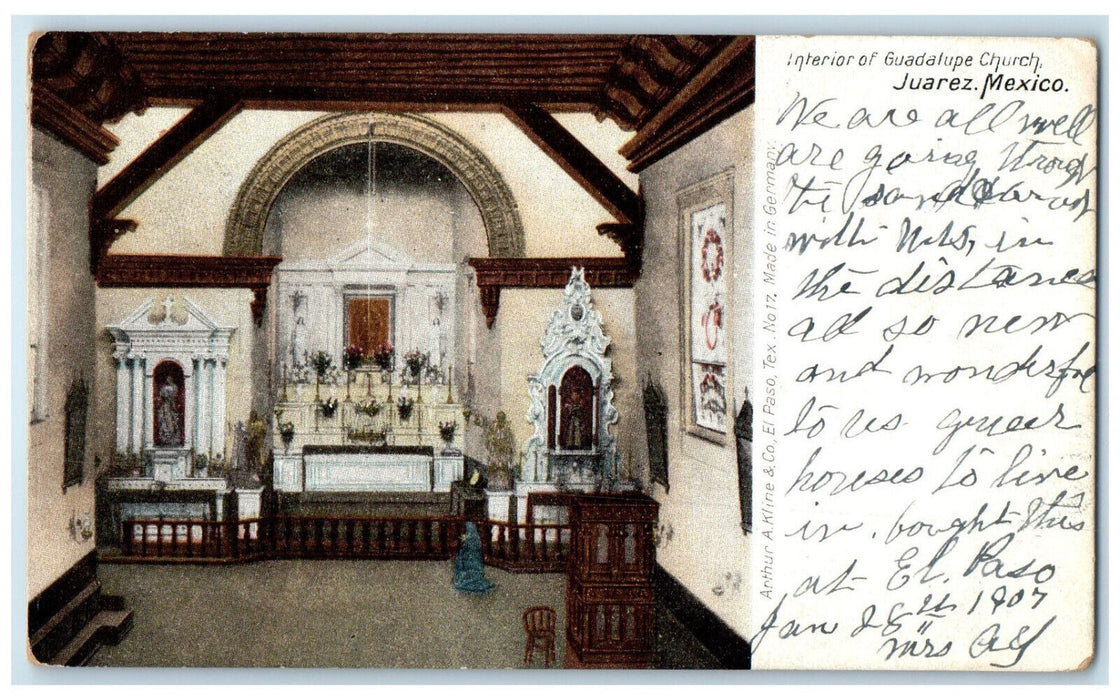 Interior of Guadalupe Church,
Juarez. Mexico.
We are all well
are going throug
the sand
with in
the distances
ad so new
and wonderful
to us queer
houses to live
in. bought this
at El. Paso
Jan 28th 1907
Mrs
Arthur A. Kline & Co., El Paso, Tex. No 17. Made in Germany.